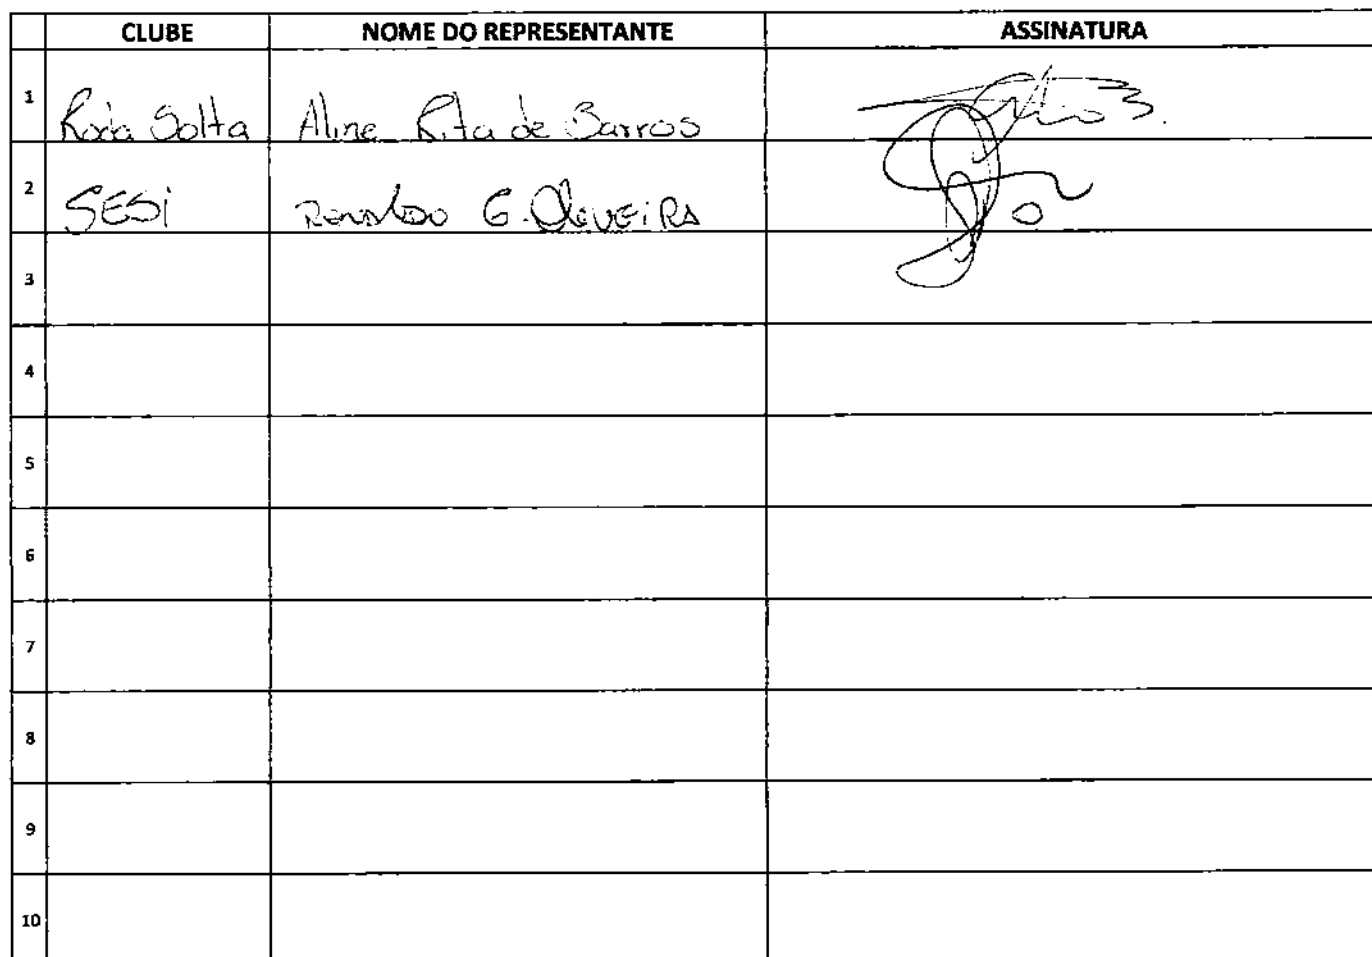 CLUBE NOME DO REPRESENTANTE ASSINATURA
1 Roda Solta Aline Rita de Barros
2 SESi Ronaldo G. Oliveira
3
4
5
6
7
8
9
10